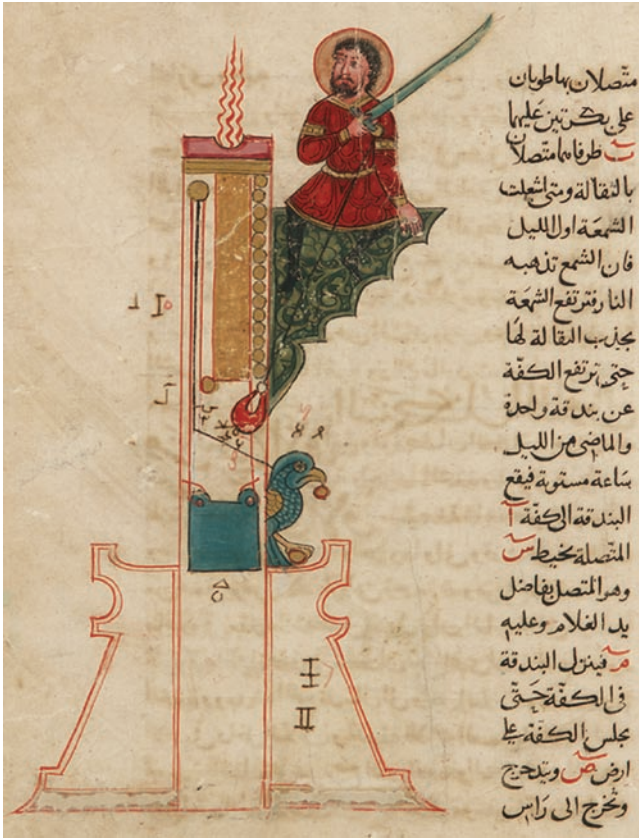 متصلان بهاطويان
على بكرتين عليهما
طرفاهما متصلان
بالثقالة ومتى اشعلت
الشمعة اول الليل
فان الشمع تذهبه
النار فترتفع الشمعة
بجذب الثقالة لها
حتى ترتفع الكفة
عن بندقة واحدة
والماضى من الليل
ساعة مستوية فيقع
البندقة الى كفة آ
المتصلة بخيط س
وهو المتصل بفاضل
يد الغلام وعليه
فينزل البندقة
فى الكفة حتى
يجلس الكفة على
ارض ص ويتدحرج
وتخرج الى راس